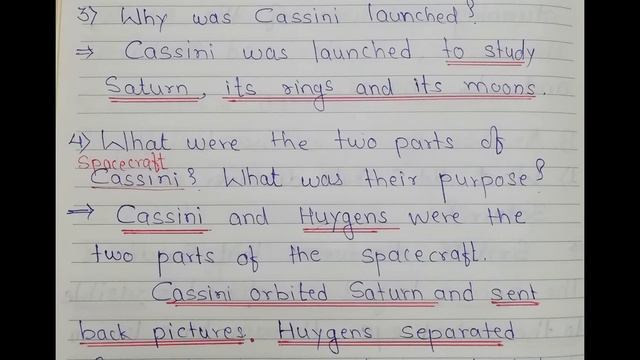 3) Why was Cassini launched?
⇒ Cassini was launched to study
Saturn, its rings and its moons.
4) What were the two parts of
spacecraft
Cassini? What was their purpose?
⇒ Cassini and Huygens were the
two parts of the spacecraft.
Cassini orbited Saturn and sent
back pictures. Huygens separated